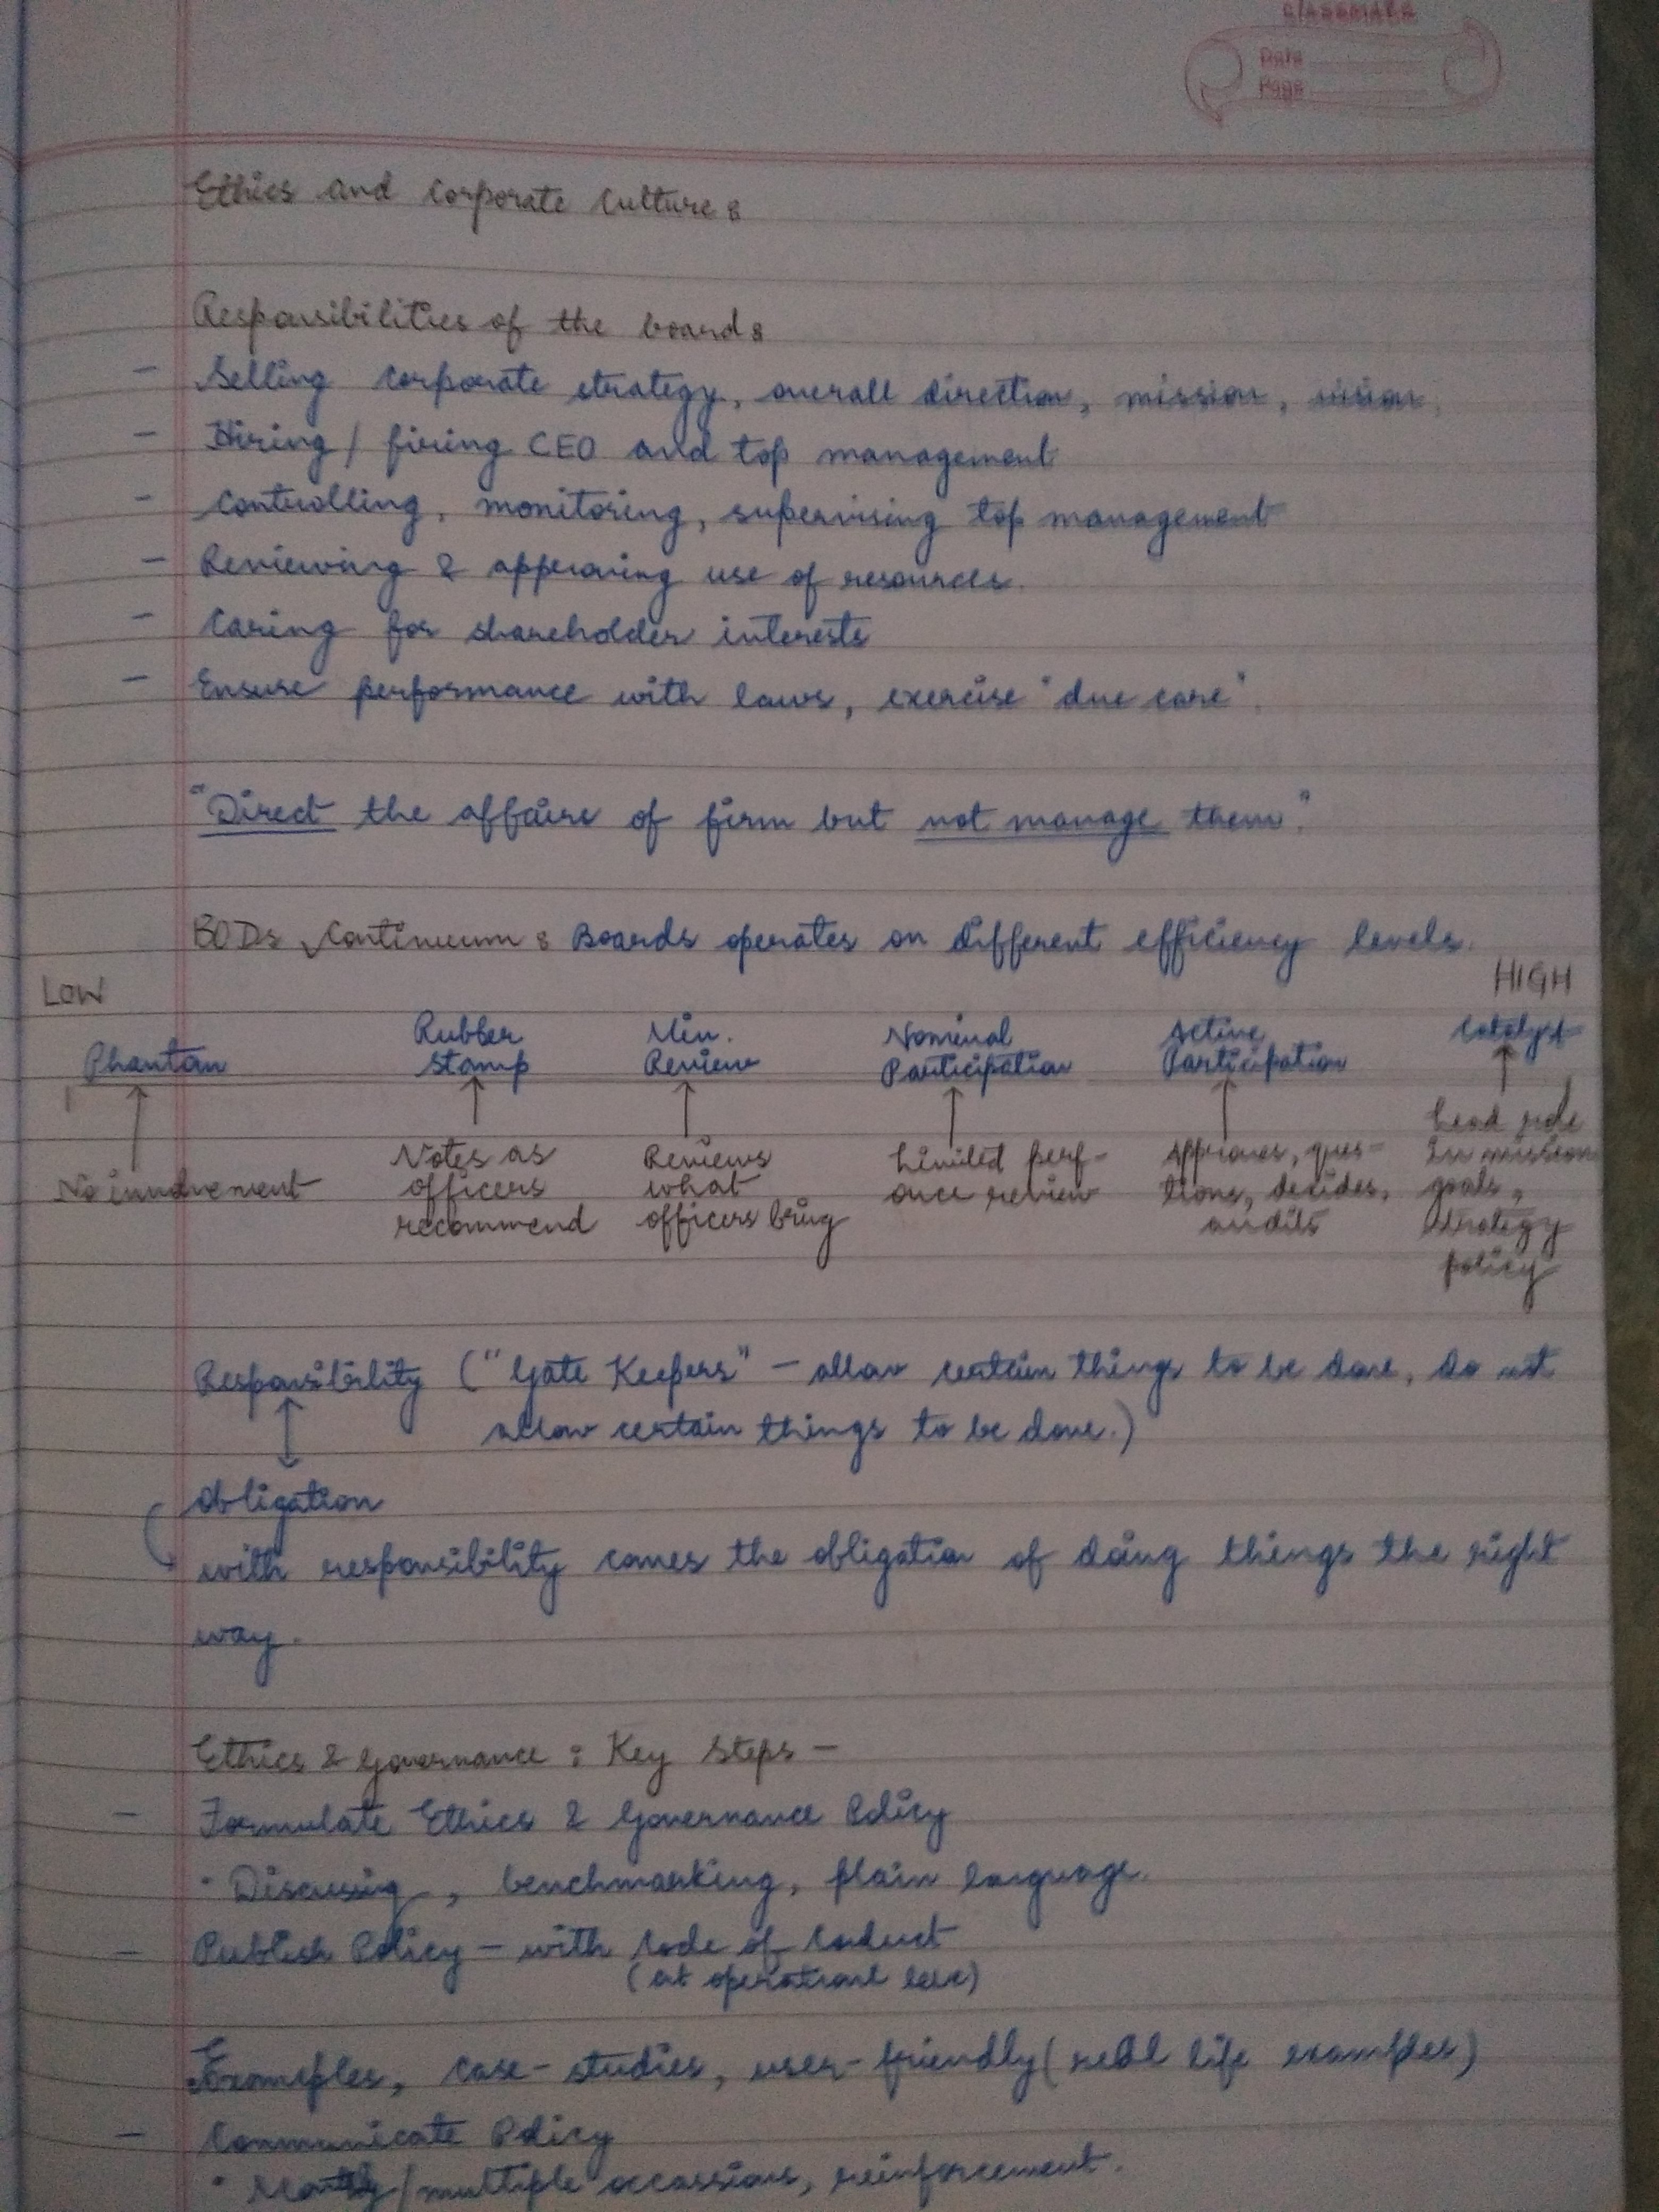 classmate
Date
Page
Ethics and Corporate Culture :
Responsibilities of the board :
- Selling corporate strategy, overall direction, mission, vision.
- Hiring / firing CEO and top management
- Controlling, monitoring, supervising top management
- Reviewing & approving use of resources.
- Caring for shareholder interests
- Ensure performance with laws, exercise "due care".
"Direct the affairs of firm but not manage them".
BODs Continuum : Boards operates on different efficiency levels.
LOW HIGH
Rubber Min. Nominal Active Catalyst
Phantom Stamp Review Participation Participation
Lead role
Notes as Reviews Limited perf- Approves, ques- In mission
No involvement officers what ance review tions, decides, goals,
recommend officers bring audits strategy
policy
Responsibility ("Gate Keepers" - allow certain things to be done, do not
allow certain things to be done.)
Obligation
with responsibility comes the obligation of doing things the right
way.
Ethics & Governance : Key Steps -
- Formulate Ethics & Governance Policy
• Discussing, benchmarking, plain language.
- Publish Policy - with Code of Conduct
(at operational level)
Examples, case-studies, user-friendly (real life examples)
- Communicate Policy
• /multiple occassions, reinforcement.